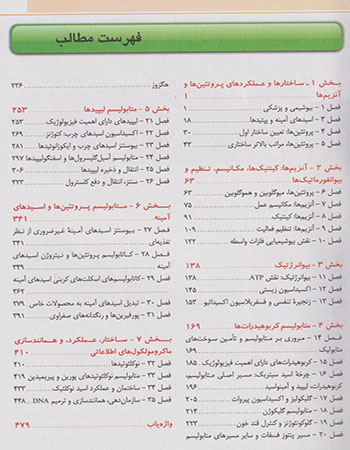 فهرست مطالب
بخش ۱ ـ ساختارها و عملکردهای پروتئین‌ها و
آنزیم‌ها ۱
فصل ۱ - بیوشیمی و پزشکی ۱
فصل ۳ - اسیدهای آمینه و پپتیدها ۱۸
فصل ۴ - پروتئین‌ها: تعیین ساختار اول ۳۰
فصل ۵ - پروتئین‌ها: مراتب بالاتر ساختاری ۴۳
بخش ۲ - آنزیم‌ها: کینتیک‌ها، مکانیسم، تنظیم و
بیوانفورماتیک‌ها ۶۳
فصل ۶ - پروتئین‌ها، میوگلوبین و هموگلوبین ۶۳
فصل ۷ - آنزیم‌ها: مکانیسم عمل ۷۵
فصل ۸ - آنزیم‌ها: کینتیک ۹۱
فصل ۹ - آنزیم‌ها: تنظیم فعالیت ۱۰۹
فصل ۱۰ - نقش بیوشیمیایی فلزات واسطه ۱۲۲
بخش ۳ - بیوانرژتیک ۱۳۸
فصل ۱۱ - بیوانرژتیک: نقش ATP ۱۳۸
فصل ۱۲ - اکسیداسیون زیستی ۱۴۵
فصل ۱۳ - زنجیرهٔ تنفسی و فسفریلاسیون اکسیداتیو ۱۵۳
بخش ۴ - متابولیسم کربوهیدرات‌ها ۱۶۹
فصل ۱۴ - مروری بر متابولیسم و تأمین سوخت‌های
متابولیک ۱۶۹
فصل ۱۵ - کربوهیدرات‌های دارای اهمیت فیزیولوژیک ۱۸۵
فصل ۱۶ - چرخهٔ اسید سیتریک: مسیر اصلی متابولیسم،
کربوهیدرات، لیپید و آمینواسید ۱۹۶
فصل ۱۷ - گلیکولیز و اکسیداسیون پیرووات ۲۰۵
فصل ۱۸ - متابولیسم گلیکوژن ۲۱۴
فصل ۱۹ - گلوکونئوژنز و کنترل قند خون ۲۲۳
فصل ۲۰ - مسیر پنتوز فسفات و سایر مسیرهای متابولیسم
هگزوز ۲۳۶
بخش ۵ - متابولیسم لیپیدها ۲۵۳
فصل ۲۱ - لیپیدهای دارای اهمیت فیزیولوژیک ۲۵۳
فصل ۲۲ - اکسیداسیون اسیدهای چرب: کتوژنز ۲۶۹
فصل ۲۳ - بیوسنتز اسیدهای چرب و ایکوزانوئیدها ۲۸۱
فصل ۲۴ - متابولیسم آسیل‌گلیسرول‌ها و اسفنگولیپیدها ۲۹۷
فصل ۲۵ - انتقال و ذخیره لیپیدها ۳۰۶
فصل ۲۶ - سنتز، انتقال و دفع کلسترول ۳۲۳
بخش ۶ - متابولیسم پروتئین‌ها و اسیدهای
آمینه ۳۴۱
فصل ۲۷ - بیوسنتز اسیدهای آمینهٔ غیرضروری از نظر
تغذیه‌ای ۳۴۱
فصل ۲۸ - کاتابولیسم پروتئین‌ها و نیتروژن اسیدهای
آمینه ۳۴۹
فصل ۲۹ - کاتابولیسم‌های اسکلت‌های کربنی اسیدهای آمینه
۳۶۲
فصل ۳۰ - تبدیل اسیدهای آمینه به محصولات خاص ۳۷۹
فصل ۳۱ - پورفیرین‌ها و رنگدانه‌های صفراوی ۳۹۱
بخش ۷ - ساختار، عملکرد، و همانندسازی
ماکرومولکول‌های اطلاعاتی ۴۱۰
فصل ۳۲ - نوکلئوتیدها ۴۱۰
فصل ۳۳ - متابولیسم نوکلئوتیدهای پورین و پیریمیدین ۴۱۹
فصل ۳۴ - ساختمان و عملکرد اسید نوکلئیک ۴۳۳
فصل ۳۵ - سازمان‌دهی، همانندسازی و ترمیم DNA ۴۴۸
واژه‌یاب ۴۷۹